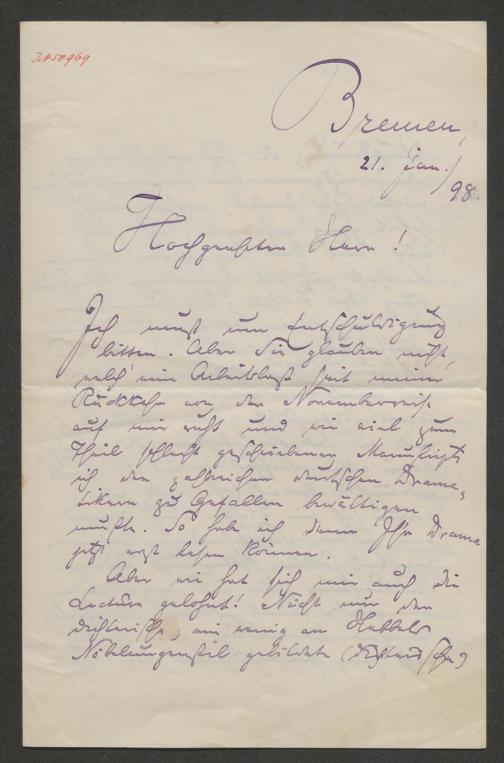 IN 50969
Bremen,
21. Jan./
98.
Hochgeehrter Herr!
Ich muß um Entschuldigung
bitten. Aber Sie glauben nicht,
welch' eine Arbeitslast seit meiner
Rückkehr von der Novemberreise
auf mir ruht und wie viel zum
Theil schlecht geschriebener Manuskripte
ich den zahlreichen deutschen Drama-
tikern zu Gefallen bewältigen
mußte. So habe ich denn Ihr Drama
jetzt erst lesen können.
Aber wie hat sich mir auch die
Lectüre gelohnt! Nicht nur der
dichterische, ein wenig an Hebbels
Nibelungenstil gebildete